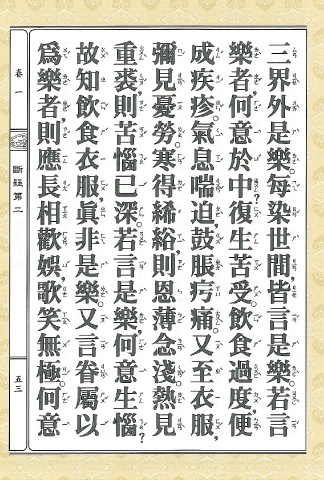 三界外是樂。每染世間，皆言是樂。若言
樂者，何意於中復生苦受？飲食過度，便
成疾疹。氣息喘迫，鼓脹疞痛。又至衣服，
彌見憂勞。寒得絺綌，則恩薄念淺。熱見
重裘，則苦惱已深。若言是樂，何意生惱？
故知飲食衣服，眞非是樂。又言眷屬以
爲樂者，則應長相歡娛，歌笑無極。何意
卷一
斷疑第二
五三